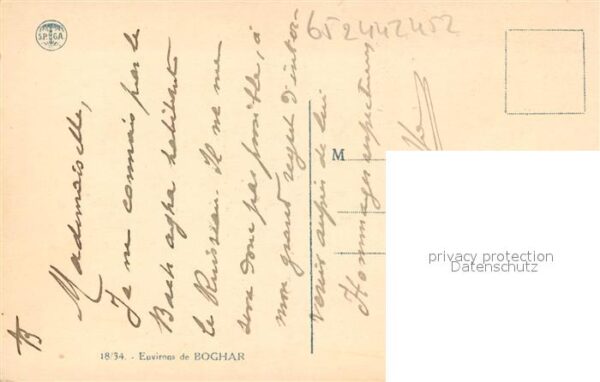 SPGA
652442452
Mademoiselle,
Je ne connais pas le
Bach agha habitant
le Ruisseau. Il ne me
sera donc pas possible, à
mon grand regret d'inter-
venir auprès de lui
Hommages respectueux
M
privacy protection
Datenschutz
18/34. - Environs de BOGHAR